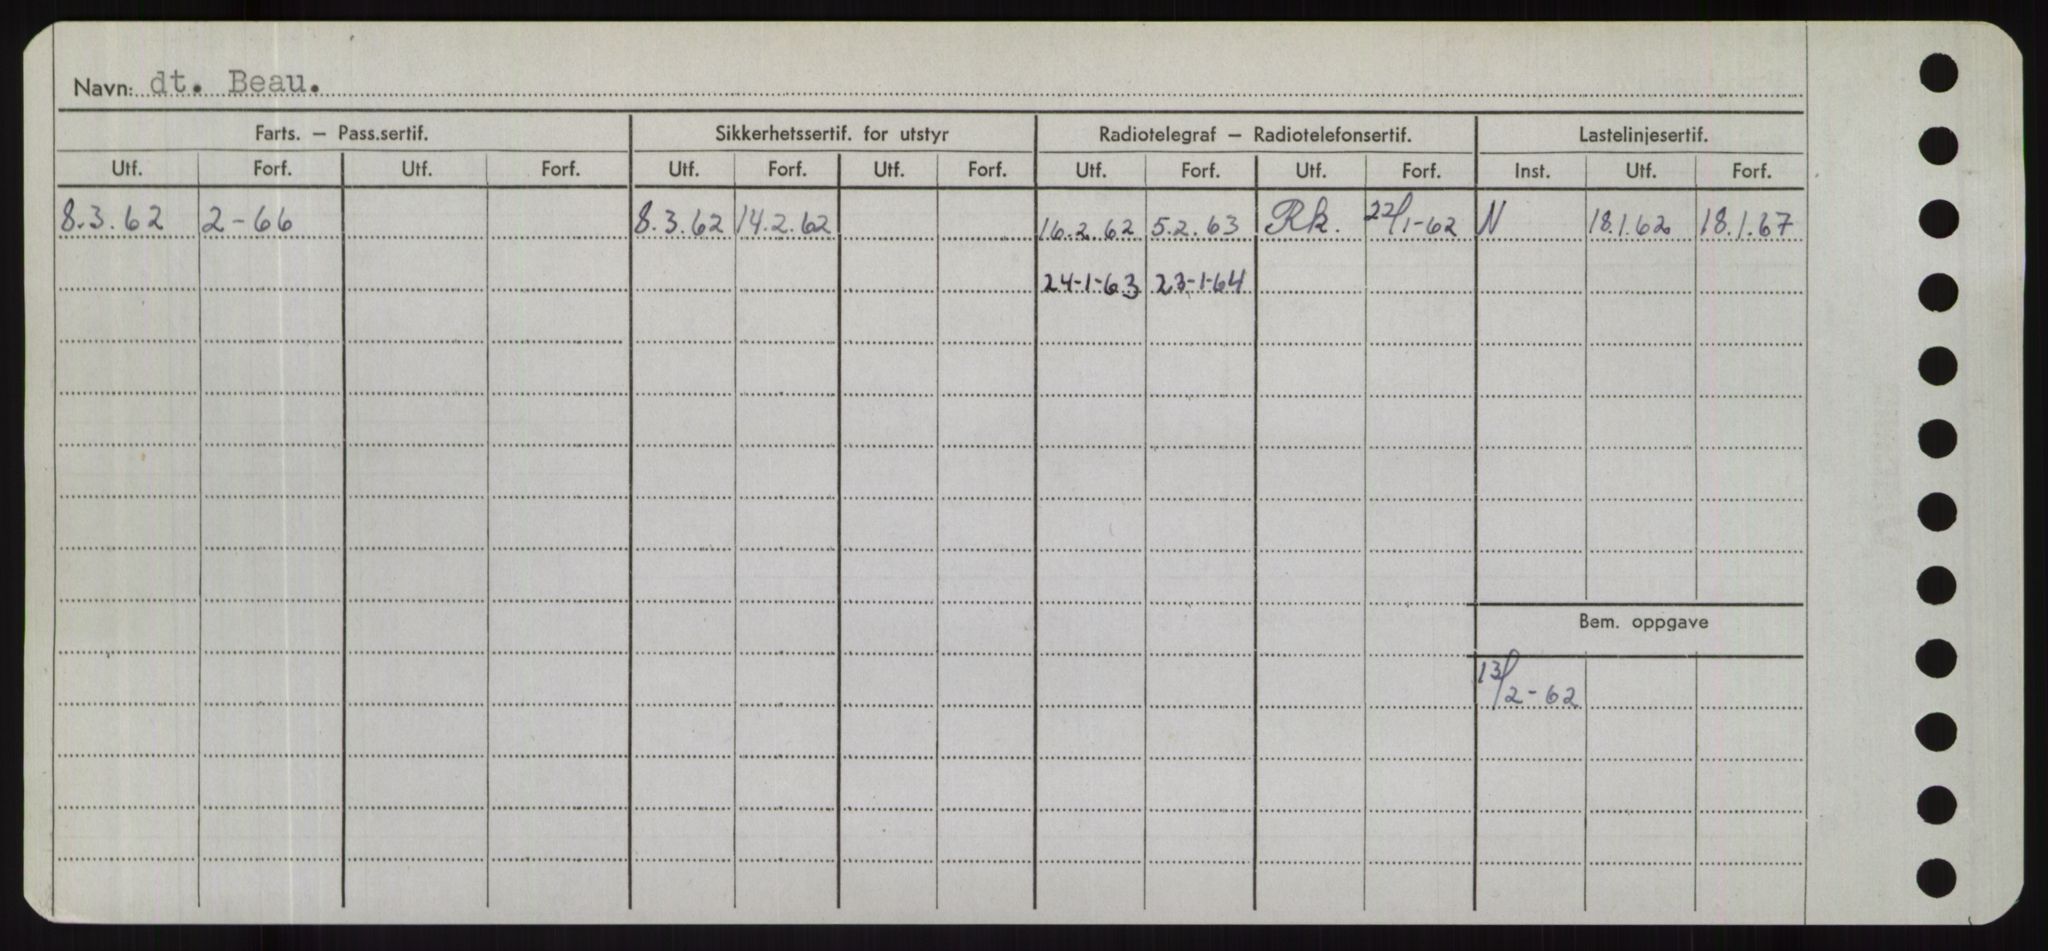 Navn: dt. Beau.
Farts. – Pass.sertif. Sikkerhetssertif. for utstyr Radiotelegraf – Radiotelefonsertif. Lastelinjesertif.
Utf. Forf. Utf. Forf. Utf. Forf. Utf. Forf. Utf. Forf. Utf. Forf. Inst. Utf. Forf.
8.3.62 2-66 8.3.62 14.2.62 16.2.62 5.2.63 Rk. 22/1-62 N 18.1.62 18.1.67
24-1-63 23-1-64
Bem. oppgave
13/2-62